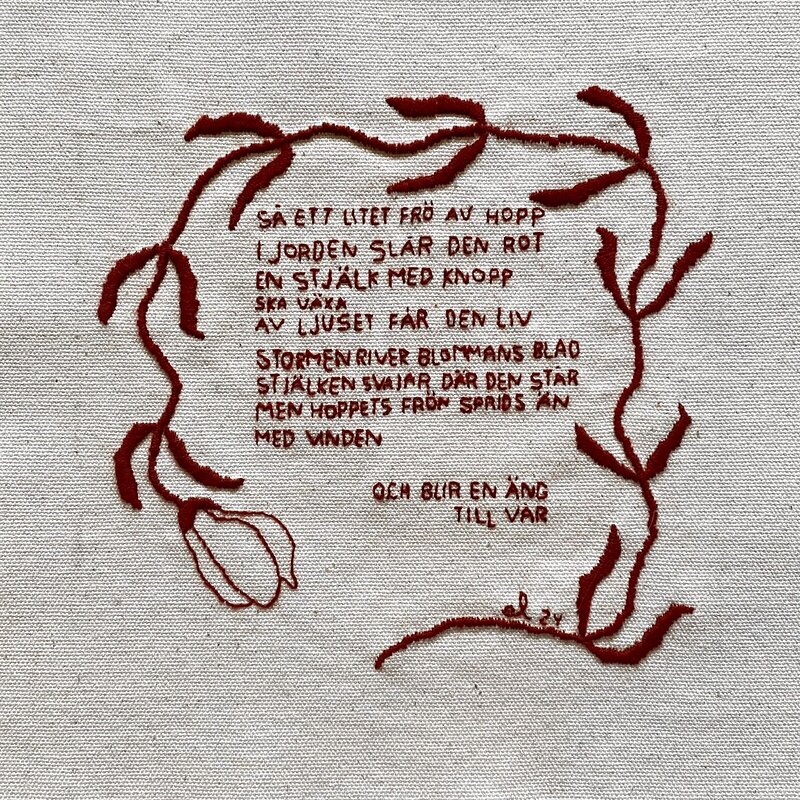 SÅ ETT LITET FRÖ AV HOPP
I JORDEN SLÅR DEN ROT
EN STJÄLK MED KNOPP
SKA VÄXA
AV LJUSET FÅR DEN LIV
STORMEN RIVER BLOMMANS BLAD
STJÄLKEN SVAJAR DÄR DEN STÅR
MEN HOPPETS FRÖN SPRIDS ÄN
MED VINDEN
OCH BLIR EN ÄNG
TILL VÅR
el 24